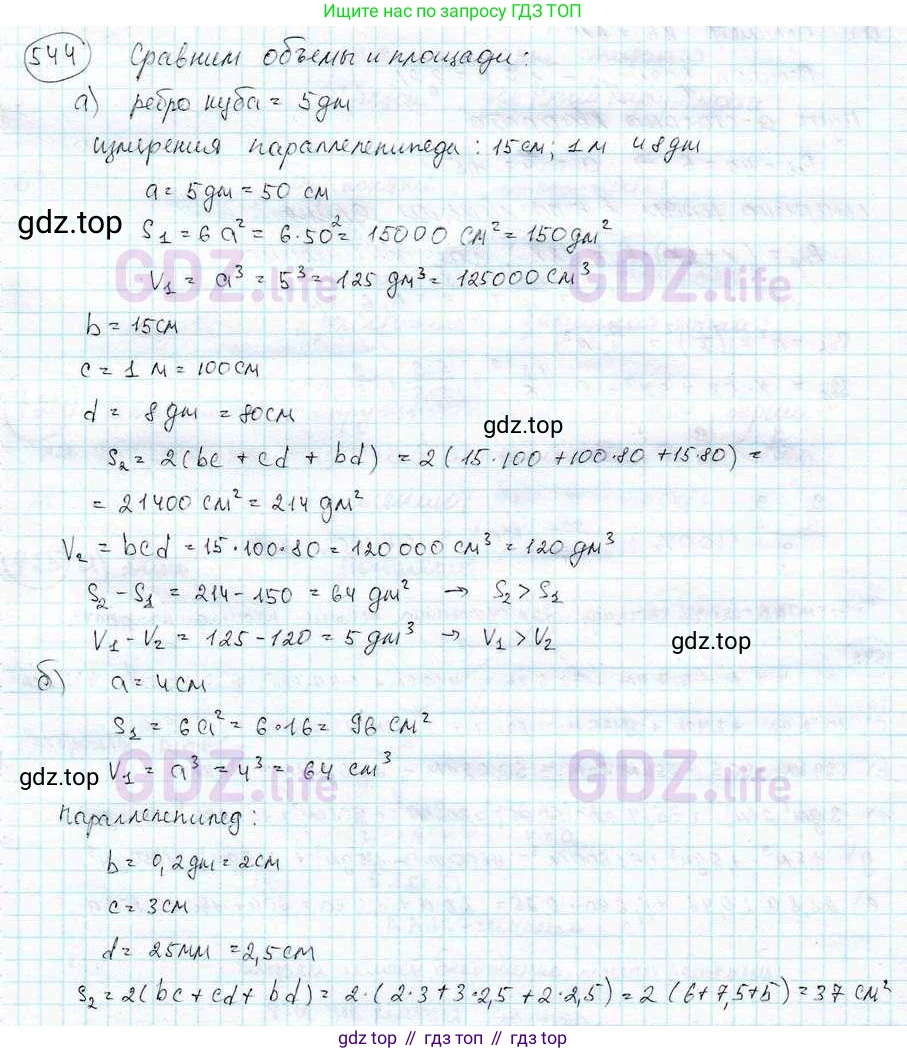 Ищите нас по запросу ГДЗ ТОП
544 Сравним объемы и площади:
а) ребро куба = 5дм
измерения параллепенипеда: 15см; 1м и 8дм
a = 5дм = 50 см
gdz.top
S₁ = 6a² = 6·50² = 15000 см² = 150дм²
GDZ.life GDZ.life
V₁ = a³ = 5³ = 125 дм³ = 125000 см³
b = 15см
c = 1 м = 100см
d = 8 дм = 80см
gdz.top
S₂ = 2(bc + cd + bd) = 2(15·100 + 100·80 + 15·80) =
= 21400 см² = 214 дм²
V₂ = bcd = 15·100·80 = 120 000 см³ = 120 дм³
S₂ - S₁ = 214 - 150 = 64 дм² → S₂ > S₁
V₁ - V₂ = 125 - 120 = 5 дм³ → V₁ > V₂
gdz.top
б) a = 4см
S₁ = 6a² = 6·16 = 96 см²
V₁ = a³ = 4³ = 64 см³
gdz.top
GDZ.life GDZ.life
Параллепенипед:
b = 0,2дм = 2см
c = 3см
d = 25мм = 2,5см
S₂ = 2(bc + cd + bd) = 2·(2·3 + 3·2,5 + 2·2,5) = 2(6 + 7,5 + 5) = 37 см²
gdz.top // гдз топ // гдз.топ